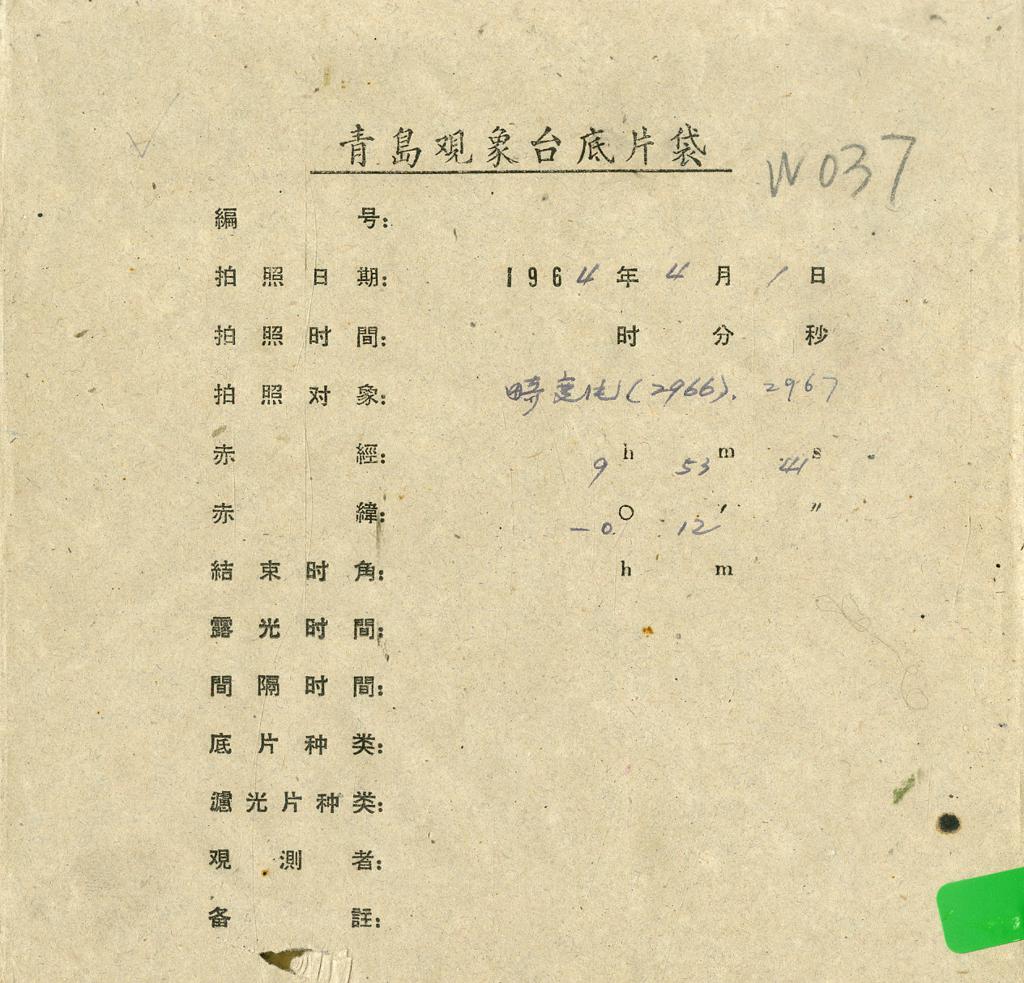 青島观象台底片袋
W037
編号:
拍照日期: 1964年4月1日
拍照时間: 时分秒
拍照对象: (2966). 2967
赤經: 9h 53m 41s
赤緯: -0° 12′ ″
結束时角: h m
露光时間:
間隔时間:
底片种类:
濾光片种类:
观測者:
备註: